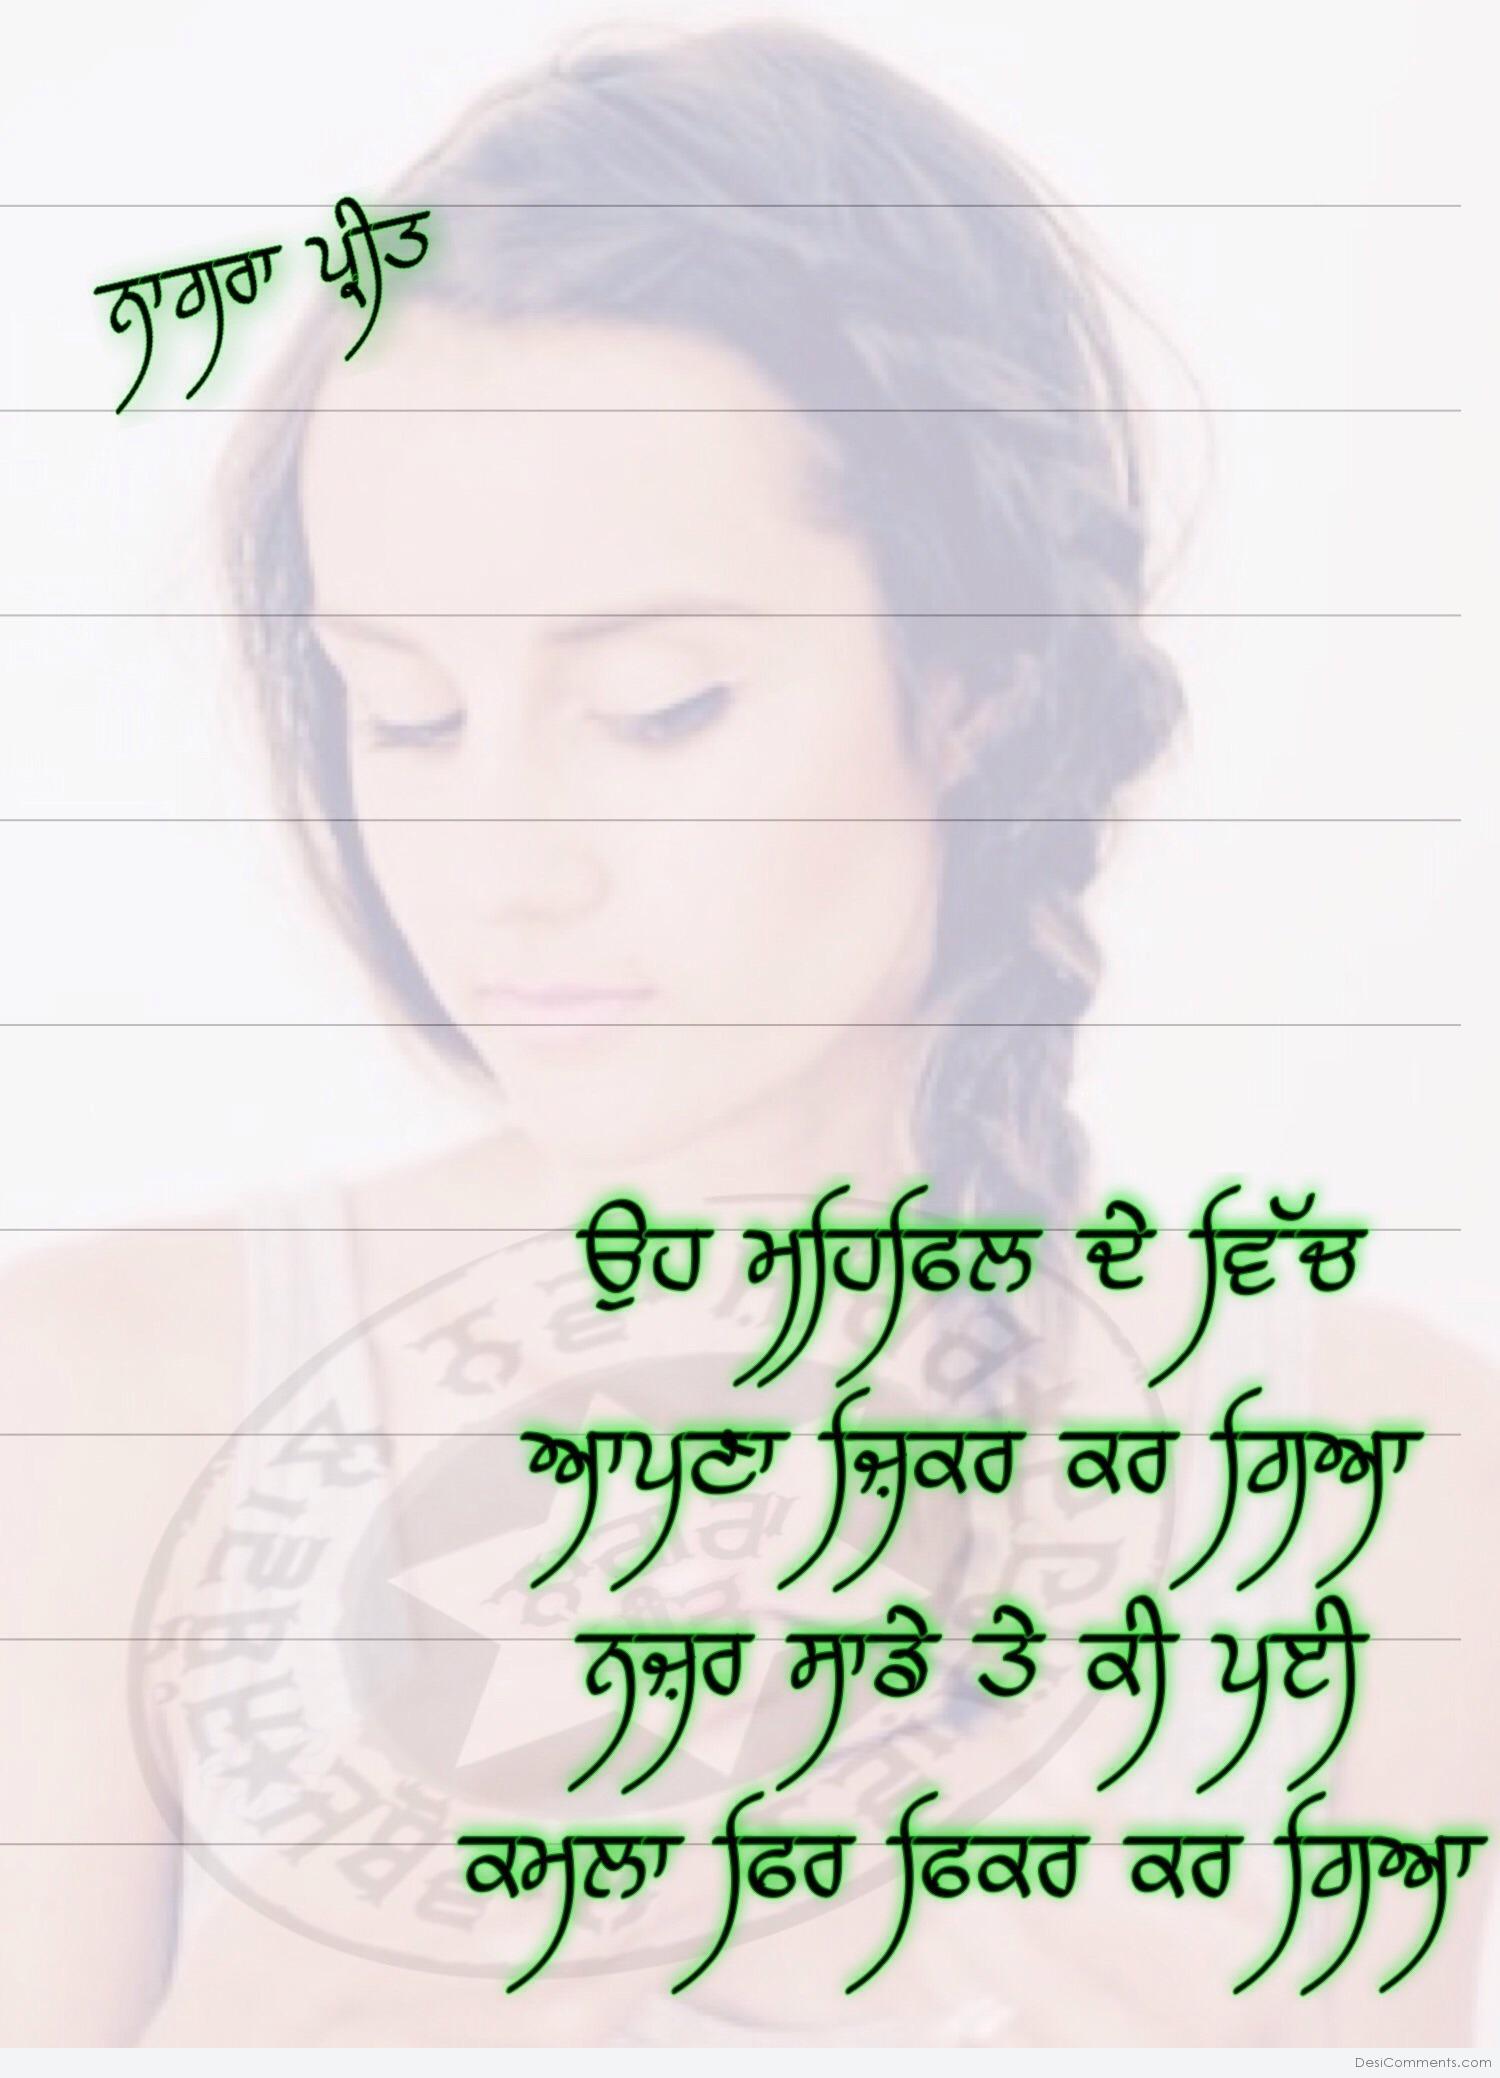 ਨਾਗਰਾ ਪ੍ਰੀਤ
ਉਹ ਮਹਿਫਿਲ ਦੇ ਵਿੱਚ
ਆਪਣਾ ਜ਼ਿਕਰ ਕਰ ਗਿਆ
ਨਜ਼ਰ ਸਾਡੇ ਤੇ ਕੀ ਪਈ
ਕਮਲਾ ਫਿਰ ਫਿਕਰ ਕਰ ਗਿਆ
DesiComments.com